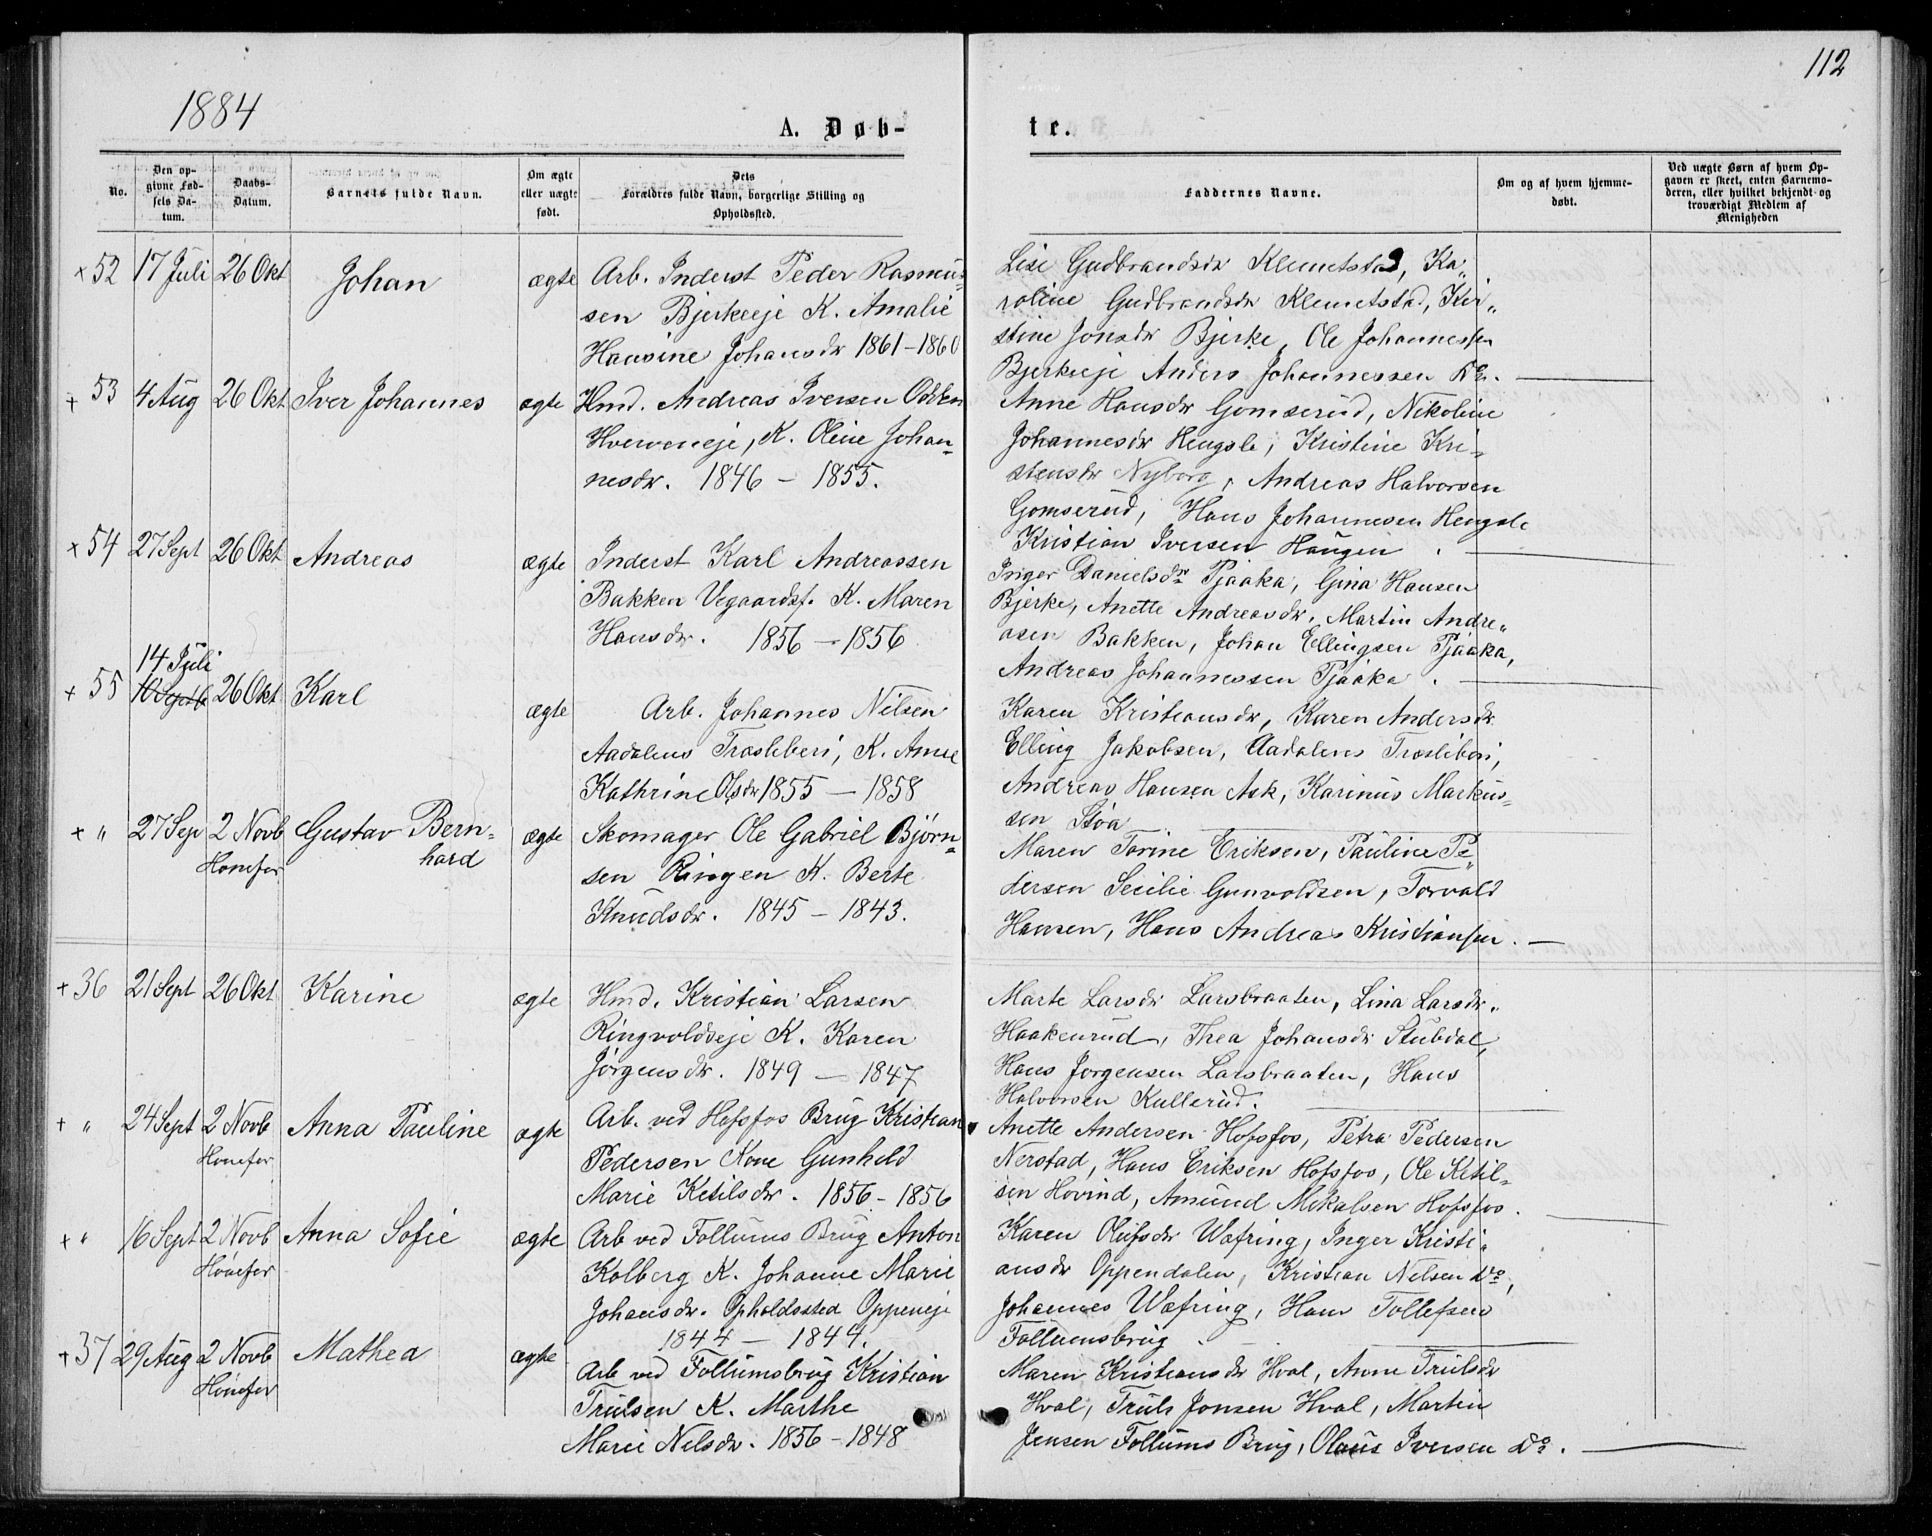 112
1884
A. Døb-
te.
No.
Den op-
givne Fød-
sels Da-
tum.
Daabs-
Datum.
Barnets fulde Navn.
Om ægte
eller uægte
født.
Dets
Forældres fulde Navn, borgerlige Stilling og
Opholdssted.
Faddernes Navne.
Om og af hvem hjemme-
døbt.
Ved uægte Børn af hvem Op-
gaven er skeet, enten Barnemo-
deren, eller hvilket bekjendt og
troværdigt Medlem af
Menigheden
+ 52 17 Juli 26 Okt Johan ægte
Arb. Inderst Peder Rasmus-
sen Bjerkeeje K. Amalie
Hansine Johansdr 1861-1860
Lise Gudbrandsdr Klemetstad, Ka-
roline Gudbrandsdr Klemetstad, Kir-
stine Jonsdr Bjerke, Ole Johannessen
Bjerkeeje Anders Johannessen Do.
+ 53 4 Aug 26 Okt Iver Johannes ægte
Hmd. Andreas Iversen Odden
Hverveneje, K. Oline Johan-
nesdr. 1846 - 1855.
Anne Hansdr Gomserud, Nikoline
Johannesdr Hengsle, Kristine Kri-
stensdr Nyborg, Andreas Halvorsen
Gomserud, Hans Johannesen Hengsle
Kristian Iversen Haugen.
+ 54 27 Sept 26 Okt Andreas ægte
Inderst Karl Andreassen
Bakken Vegaardsf. K. Maren
Hansdr. 1856 - 1856
Inger Danielsdr Tjaaka, Gina Hansen
Bjerke, Anette Andreasdr, Martin Andre-
asen Bakken, Johan Ellingsen Tjaaka,
Andreas Johannessen Tjaaka.
14 Juli
+ 55 10 Septb 26 Okt Karl ægte
Arb. Johannes Nilsen
Aadalens Træsliberi, K. Anne
Kathrine Olsdr 1855 - 1858
Karen Kristiansdr, Karen Andersdr
Elling Jakobsen, Aadalens Træsliberi,
Andreas Hansen Ask, Karinus Markus-
sen Støa
+ " 27 Sep 2 Novb Gustav Bern-
Hønefos hard ægte
Skomager Ole Gabriel Bjørn-
sen Ringen K. Berte
Knudsdr. 1845 - 1843.
Maren Torine Eriksen, Pauline Pe-
dersen Secilie Gunvoldsen, Torvald
Hansen, Hans Andreas Kristiansen.
+ 36 21 Sept 26 Okt Karine ægte
Hmd. Kristian Larsen
Ringvoldseje K. Karen
Jørgensdr. 1849 - 1847
Marte Larsdr Larsbraaten, Lina Larsdr.
Haakenrud, Thea Johansdr Stubdal,
Hans Jørgensen Larsbraaten, Hans
Halvorsen Kullerud.
+ " 24 Sept 2 Novb Anna Pauline ægte
Hønefos
Arb. ved Hofsfos Brug Kristian
Pedersen Kone Gunhild
Marie Ketilsdr. 1856 - 1856
Anette Andersen Hofsfos, Petra Pedersen
Nerstad, Hans Eriksen Hofsfos, Ole Ketil-
sen Hovind, Amund Mikalsen Hofsfos.
+ " 16 Sept 2 Novb Anna Sofie ægte
Hønefos
Arb ved Follums Brug Anton
Kolberg K. Johanne Marie
Johansdr. Opholdssted Oppeneje
1844 - 1844.
Karen Olufsdr Wæfring, Inger Kristi-
ansdr Oppendalen, Kristian Nelsen Do,
Johannes Wæfring, Hans Tollefsen
Follumsbrug.
+ 37 29 Aug 2 Novb Mathea ægte
Hønefos
Arb ved Follumsbrug Kristian
Trulsen K. Marthe
Marie Nelsdr. 1856 - 1848
Maren Kristiansdr Hval, Anne Trulsdr
Hval, Truls Jonsen Hval, Martin
Jensen Follums Brug, Olaus Iversen Do.